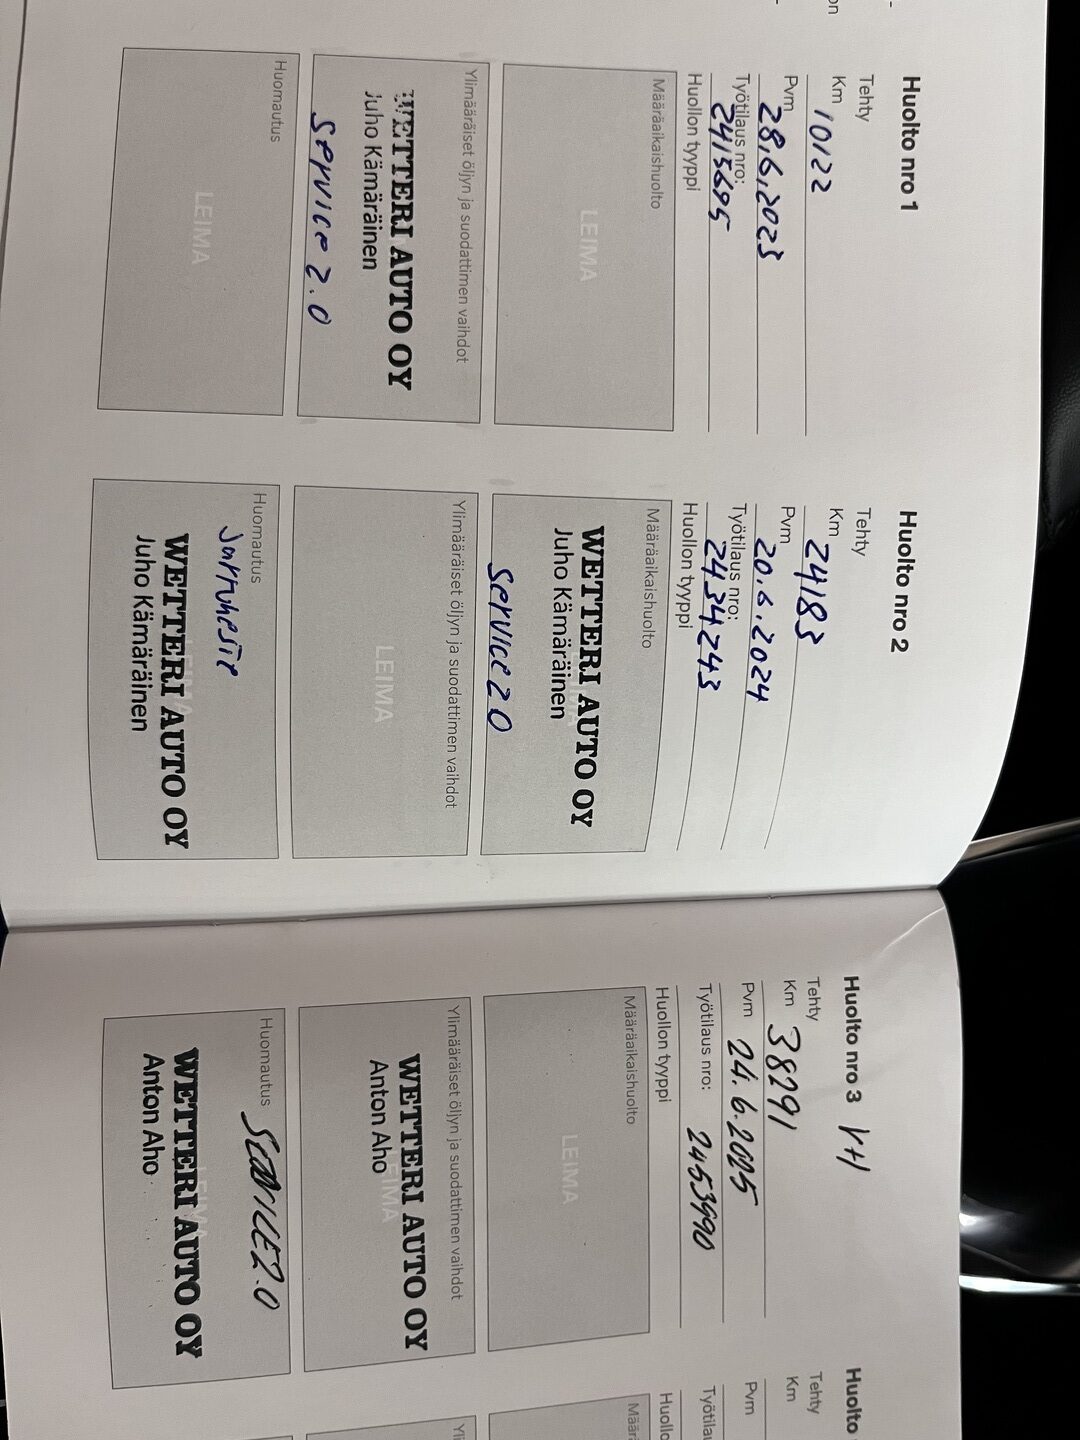 Huolto nro 1
Tehty
Km 10122
Pvm 28.6.2023
Työtilaus nro: 2415695
Huollon tyyppi
Määräaikaishuolto
LEIMA
Ylimääräiset öljyn ja suodattimen vaihdot
WETTERI AUTO OY
Juho Kämäräinen
Service 2.0
Huomautus
LEIMA
Huolto nro 2
Tehty
Km 24183
Pvm 20.6.2024
Työtilaus nro: 2434243
Huollon tyyppi
Määräaikaishuolto
WETTERI AUTO OY
Juho Kämäräinen
Service 2.0
Ylimääräiset öljyn ja suodattimen vaihdot
LEIMA
Huomautus
Jarruneste
WETTERI AUTO OY
Juho Kämäräinen
Huolto nro 3
Tehty
Km 38291
Pvm 24.6.2025
Työtilaus nro: 2453990
Huollon tyyppi
Määräaikaishuolto
LEIMA
Ylimääräiset öljyn ja suodattimen vaihdot
WETTERI AUTO OY
LEIMA
Anton Aho
Huomautus
SERVICE 2.0
WETTERI AUTO OY
LEIMA
Anton Aho
Huolto
Tehty
Km
Pvm